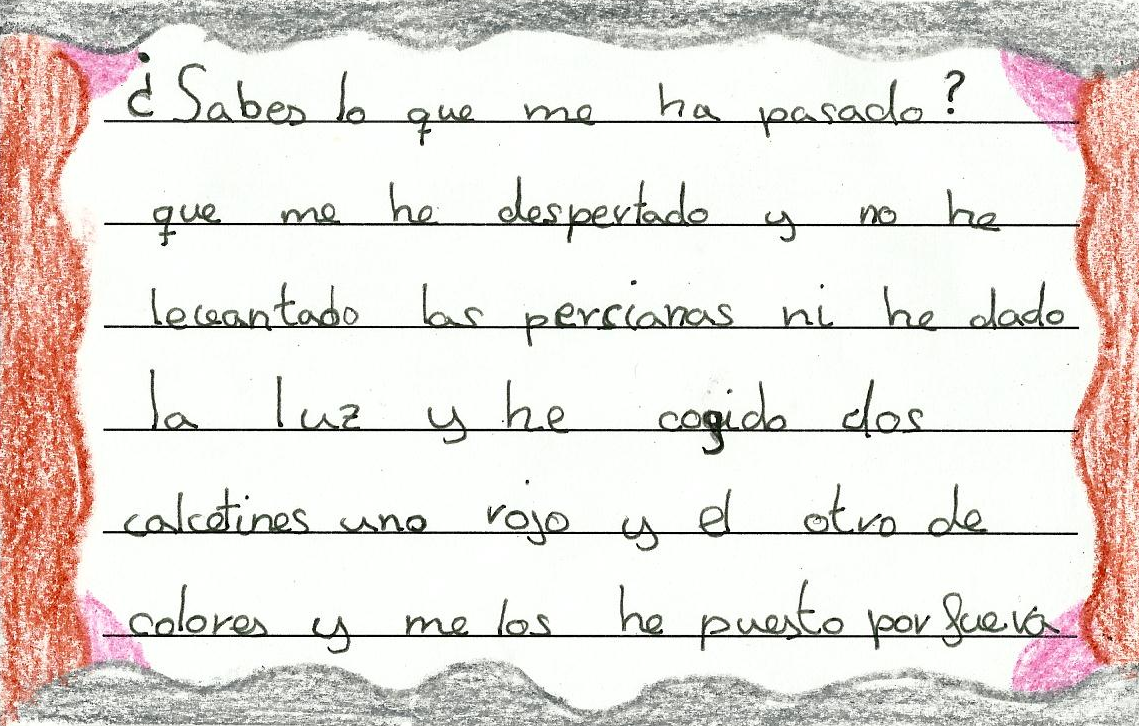 ¿Sabes lo que me ha pasado?
que me he despertado y no he
levantado las persianas ni he dado
la luz y he cogido dos
calcetines uno rojo y el otro de
colores y me los he puesto por fuera